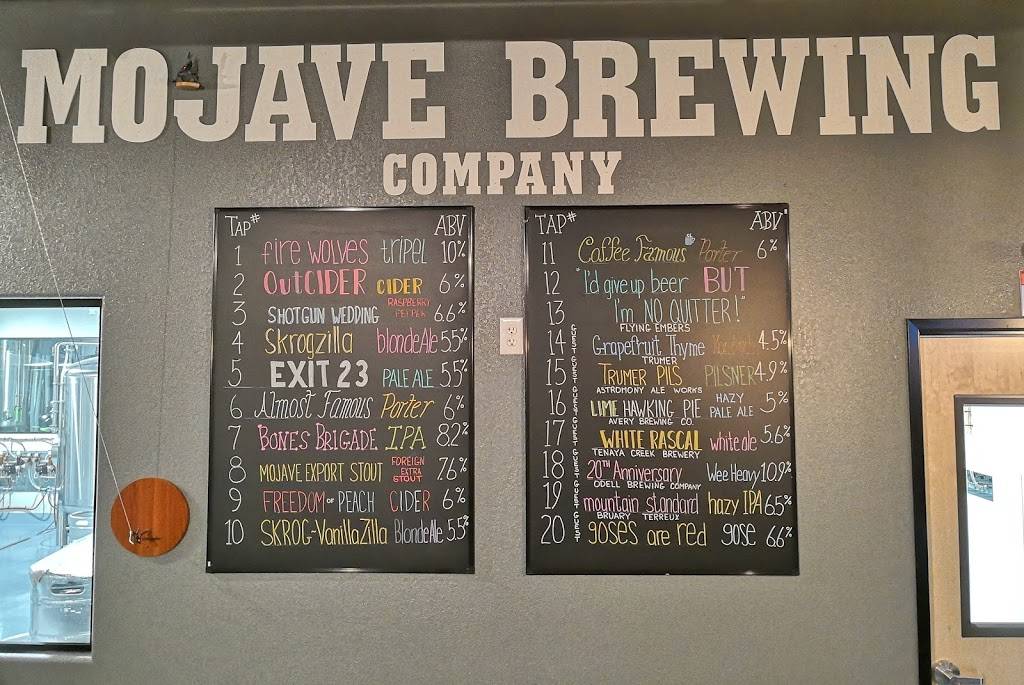 MOJAVE BREWING
COMPANY
TAP# ABV
1 fire wolves tripel 10%
2 OutCIDER CIDER 6%
3 SHOTGUN WEDDING RASPBERRY PEPPER 6.6%
4 Skrogzilla blonde Ale 5.5%
5 EXIT 23 PALE ALE 5.5%
6 Almost Famous Porter 6%
7 BONES BRIGADE IPA 8.2%
8 MOJAVE EXPORT STOUT FOREIGN EXTRA STOUT 7.6%
9 FREEDOM OF PEACH CIDER 6%
10 SKROG-VanillaZilla Blonde Ale 5.5%
TAP# ABV
11 Coffee Famous Porter 6%
12 "I'd give up beer BUT
13 I'm NO QUITTER!"
FLYING EMBERS
14 GUEST Grapefruit Thyme 4.5%
TRUMER
15 GUEST TRUMER PILS PILSNER 4.9%
ASTROMONY ALE WORKS
16 GUEST LIME HAWKING PIE HAZY PALE ALE 5%
AVERY BREWING CO.
17 GUEST WHITE RASCAL white ale 5.6%
TENAYA CREEK BREWERY
18 GUEST 20TH Anniversary Wee Heavy 10.9%
ODELL BREWING COMPANY
19 GUEST mountain standard hazy IPA 6.5%
BRUARY TERREUX
20 GUEST goses are red gose 6.6%